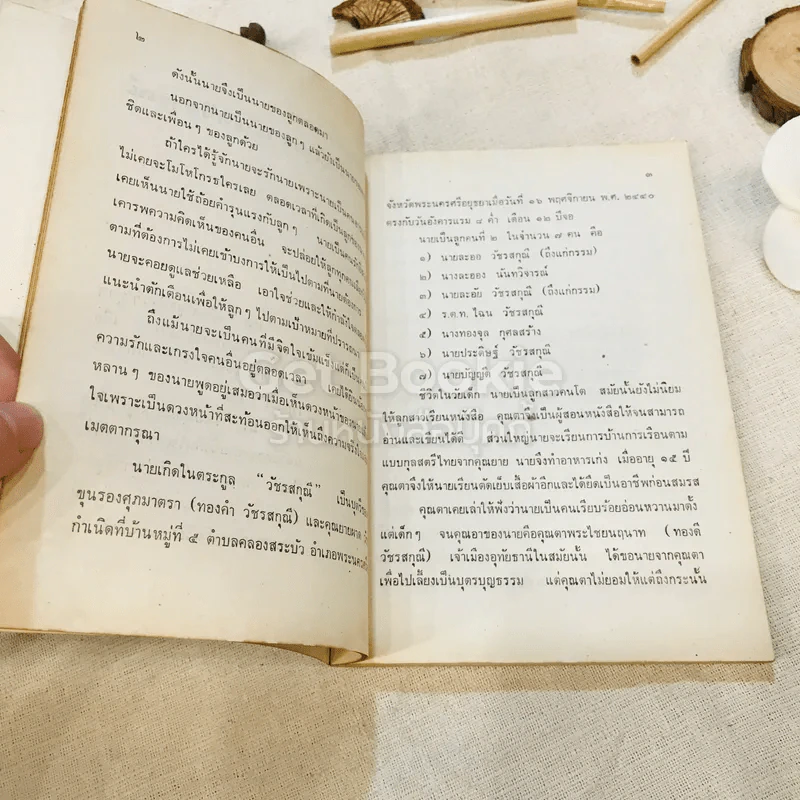 ๒
ดังนั้นนายจึงเป็นนายของลูกตลอดมา
นอกจากนายเป็นนายของลูก ๆ แล้วยังเป็นนาย
ชิตและเพื่อน ๆ ของลูกด้วย
ถ้าใครได้รู้จักนายจะรักนายเพราะนายเป็นคน
ไม่เคยจะโมโหโกรธใครเลย ตลอดเวลาที่เป็นลูก
เคยเห็นนายใช้ถ้อยคำรุนแรงกับลูก ๆ นายเป็นคน
เคารพความคิดเห็นของคนอื่น จะปล่อยให้ลูกทุกคน
ตามที่ต้องการไม่เคยเข้าบงการให้เป็นไปตามที่นายต้องการ
นายจะคอยดูแลช่วยเหลือ เอาใจช่วยและให้กำลังใจ
แนะนำตักเตือนเพื่อให้ลูก ๆ ไปตามเป้าหมายที่ปรารถนา
ถึงแม้นายจะเป็นคนที่มีจิตใจเข้มแข็งแต่ก็เป็น
ความรักและเกรงใจคนอื่นอยู่ตลอดเวลา เคยได้ยิน
หลาน ๆ ของนายพูดอยู่เสมอว่าเมื่อเห็นดวงหน้าของนาย
ใจเพราะเป็นดวงหน้าที่สะท้อนออกให้เห็นถึงความจริงใจ
เมตตากรุณา
นายเกิดในตระกูล "วัชรสกุณี" เป็นบุตรี
ขุนรองศุภมาตรา (ทองคำ วัชรสกุณี) และคุณยายผาด
กำเนิดที่บ้านหมู่ที่ ๕ ตำบลคลองสระบัว อำเภอพระนคร
๓
จังหวัดพระนครศรีอยุธยาเมื่อวันที่ ๑๖ พฤศจิกายน พ.ศ. ๒๔๔๐
ตรงกับวันอังคารแรม ๘ ค่ำ เดือน ๑๒ ปีจอ
นายเป็นลูกคนที่ ๒ ในจำนวน ๗ คน คือ
๑) นายละออ วัชรสกุณี (ถึงแก่กรรม)
๒) นางละออง นันทวิจารณ์
๓) นายละอัย วัชรสกุณี (ถึงแก่กรรม)
๔) ร.ต.ท. ไฉน วัชรสกุณี
๕) นางทองจุล กุศลสร้าง
๖) นายประดิษฐ์ วัชรสกุณี
๗) นายบัญญัติ วัชรสกุณี
ชีวิตในวัยเด็ก นายเป็นลูกสาวคนโต สมัยนั้นยังไม่นิยม
ให้ลูกสาวเรียนหนังสือ คุณตาจึงเป็นผู้สอนหนังสือให้จนสามารถ
อ่านและเขียนได้ดี ส่วนใหญ่นายจะเรียนการบ้านการเรือนตาม
แบบกุลสตรีไทยจากคุณยาย นายจึงทำอาหารเก่ง เมื่ออายุ ๑๕ ปี
คุณตาจึงให้นายเรียนตัดเย็บเสื้อผ้าอีกและได้ยึดเป็นอาชีพก่อนสมรส
คุณตาเคยเล่าให้ฟังว่านายเป็นคนเรียบร้อยอ่อนหวานมาตั้ง
แต่เด็ก ๆ จนคุณอาของนายคือคุณตาพระไชยนฤนาท (ทองดี
วัชรสกุณี) เจ้าเมืองอุทัยธานีในสมัยนั้น ได้ขอนายจากคุณตา
เพื่อไปเลี้ยงเป็นบุตรบุญธรรม แต่คุณตาไม่ยอมให้แต่ถึงกระนั้น
GetBookie
ร้านหนังสืออยู่ที่